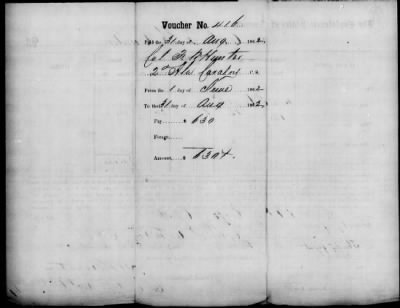 Voucher No. 416
Paid on 31 day of Aug 1862,
Col. F. R. Hunter
2nd Ala Cavalry C. S.
From the 1 day of June 1862
To the 31 day of Aug 1862
Pay ...... $ 630
Forage ......
Amount, ...... $ 630